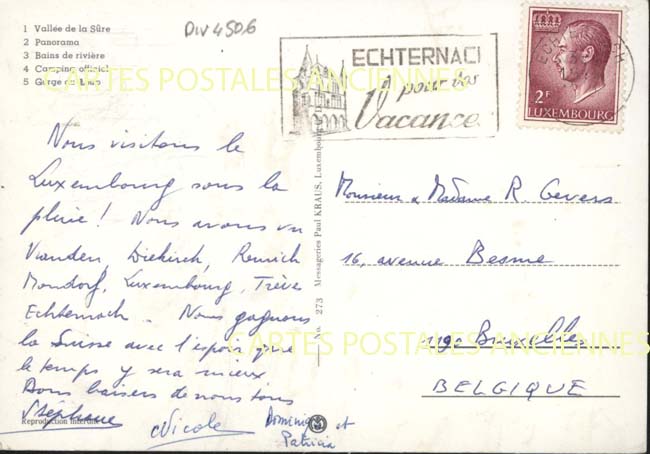 1 Vallée de la Sûre
2 Panorama
3 Bains de rivière
4 Camping officiel
5 Gorge du Loup
Div 4506
ECHTERNACH
pour vos
Vacances
2F
LUXEMBOURG
CARTES POSTALES ANCIENNES
Nous visitons le
Luxembourg sous la
pluie! Nous avons vu
Vianden, Diekirch, Remich
Mondorf, Luxembourg, Trève
Echternach. Nous gagnons
la Suisse avec l'espoir que
le temps y sera mieux
Bons baisers de nous tous
Stéphane Nicole Dominique et
Patricia
Reproduction interdite
No. 273 Messageries Paul KRAUS, Luxembourg
Monsieur & Madame R. Gevers
16, avenue Besme
1190 Bruxelles
BELGIQUE
CARTES POSTALES ANCIENNES